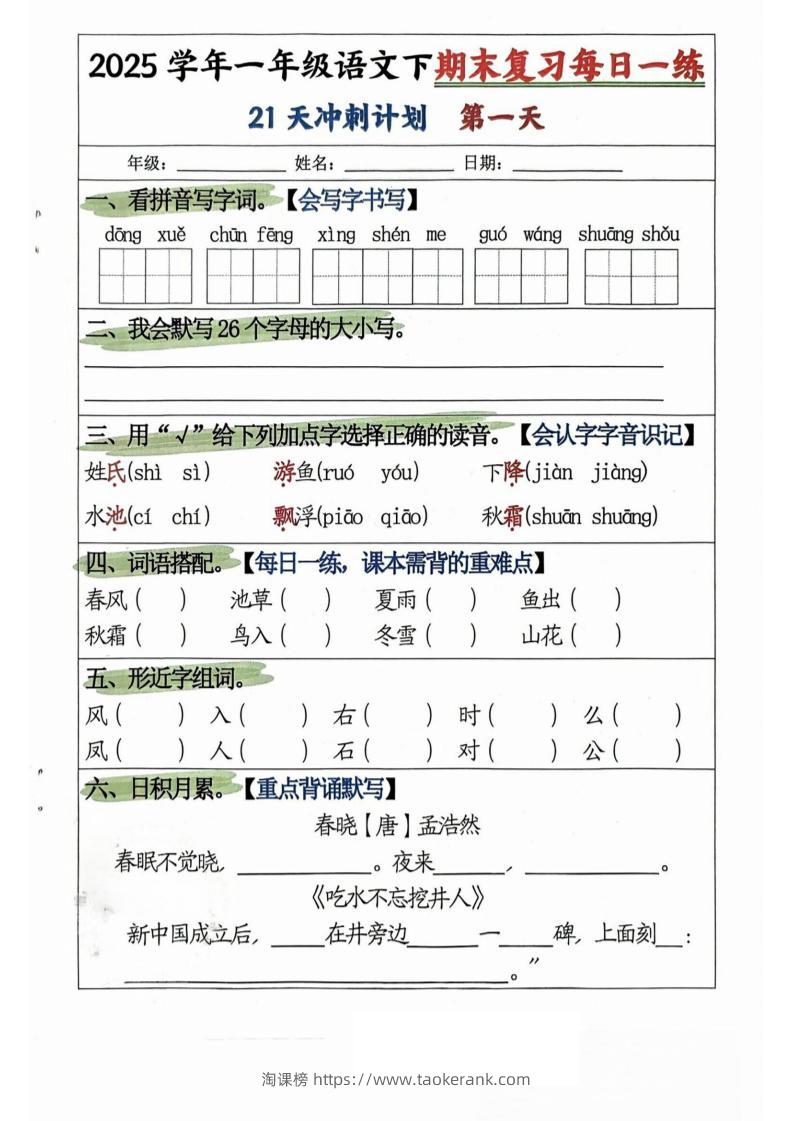 2025 学年一年级语文下期末复习每日一练
21 天冲刺计划 第一天
年级：________ 姓名：________ 日期：________
一、看拼音写字词。【会写字书写】
dōng xuě chūn fēng xìng shén me guó wáng shuāng shǒu
二、我会默写 26 个字母的大小写。
三、用“√”给下列加点字选择正确的读音。【会认字字音识记】
姓氏(shì sì) 游鱼(ruó yóu) 下降(jiàn jiàng)
水池(cí chí) 飘浮(piāo qiāo) 秋霜(shuān shuāng)
四、词语搭配。【每日一练，课本需背的重难点】
春风（ ） 池草（ ） 夏雨（ ） 鱼出（ ）
秋霜（ ） 鸟入（ ） 冬雪（ ） 山花（ ）
五、形近字组词。
风（ ） 入（ ） 右（ ） 时（ ） 么（ ）
凤（ ） 人（ ） 石（ ） 对（ ） 公（ ）
六、日积月累。【重点背诵默写】
春晓【唐】孟浩然
春眠不觉晓，________。夜来________，________。
《吃水不忘挖井人》
新中国成立后，____在井旁边____一____碑，上面刻__：
________________。”
淘课榜 https://www.taokerank.com